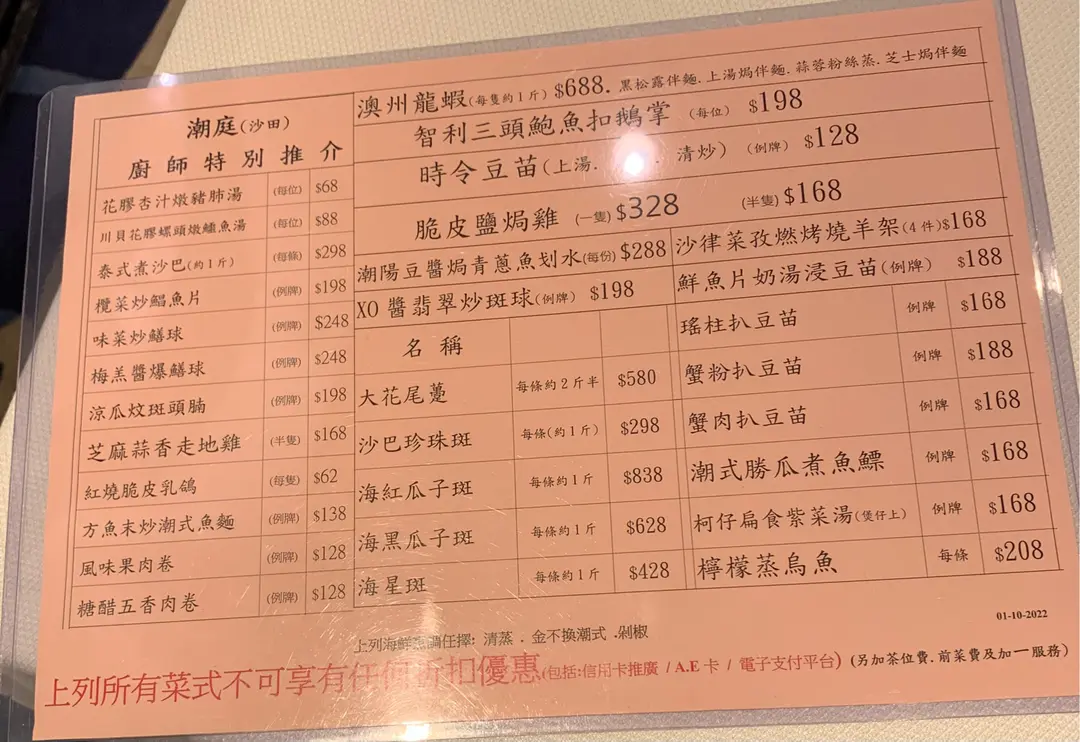 潮庭(沙田)
廚師特別推介
花膠杏汁燉豬肺湯 (每位) $68
川貝花膠螺頭燉鱷魚湯 (每位) $88
泰式煮沙巴(約1斤) (每條) $298
欖菜炒鯧魚片 (例牌) $198
味菜炒鱔球 (例牌) $248
梅羔醬爆鱔球 (例牌) $248
涼瓜炆斑頭腩 (例牌) $198
芝麻蒜香走地雞 (半隻) $168
紅燒脆皮乳鴿 (每隻) $62
方魚末炒潮式魚麵 (例牌) $138
風味果肉卷 (例牌) $128
糖醋五香肉卷 (例牌) $128
澳州龍蝦(每隻約1斤) $688. 黑松露伴麵. 上湯焗伴麵. 蒜蓉粉絲蒸. 芝士焗伴麵
智利三頭鮑魚扣鵝掌 (每位) $198
時令豆苗(上湯. . 清炒) (例牌) $128
脆皮鹽焗雞 (一隻) $328 (半隻) $168
潮陽豆醬焗青蔥魚划水(每份) $288
沙律菜孜燃烤燒羊架(4件)$168
XO醬翡翠炒斑球(例牌) $198
鮮魚片奶湯浸豆苗(例牌) $188
名稱
大花尾躉 每條約2斤半 $580
沙巴珍珠斑 每條(約1斤) $298
海紅瓜子斑 每條約1斤 $838
海黑瓜子斑 每條約1斤 $628
海星斑 每條約1斤 $428
瑤柱扒豆苗 例牌 $168
蟹粉扒豆苗 例牌 $188
蟹肉扒豆苗 例牌 $168
潮式勝瓜煮魚鰾 例牌 $168
柯仔扁食紫菜湯(煲仔上) 例牌 $168
檸檬蒸烏魚 每條 $208
01-10-2022
上列海鮮烹調任擇: 清蒸 . 金不換潮式 .剁椒
上列所有菜式不可享有任何折扣優惠(包括:信用卡推廣 / A.E 卡 / 電子支付平台) (另加茶位費. 前菜費及加一服務)